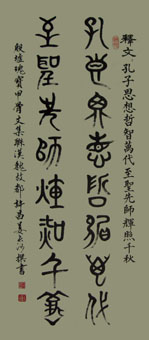 釋文 孔子思想哲智萬代至聖先師輝照千秋
孔子思想哲智萬代
至聖先師輝照千秋
殷墟瑰寶甲骨文集聯漢魏故都許昌姜河撰書